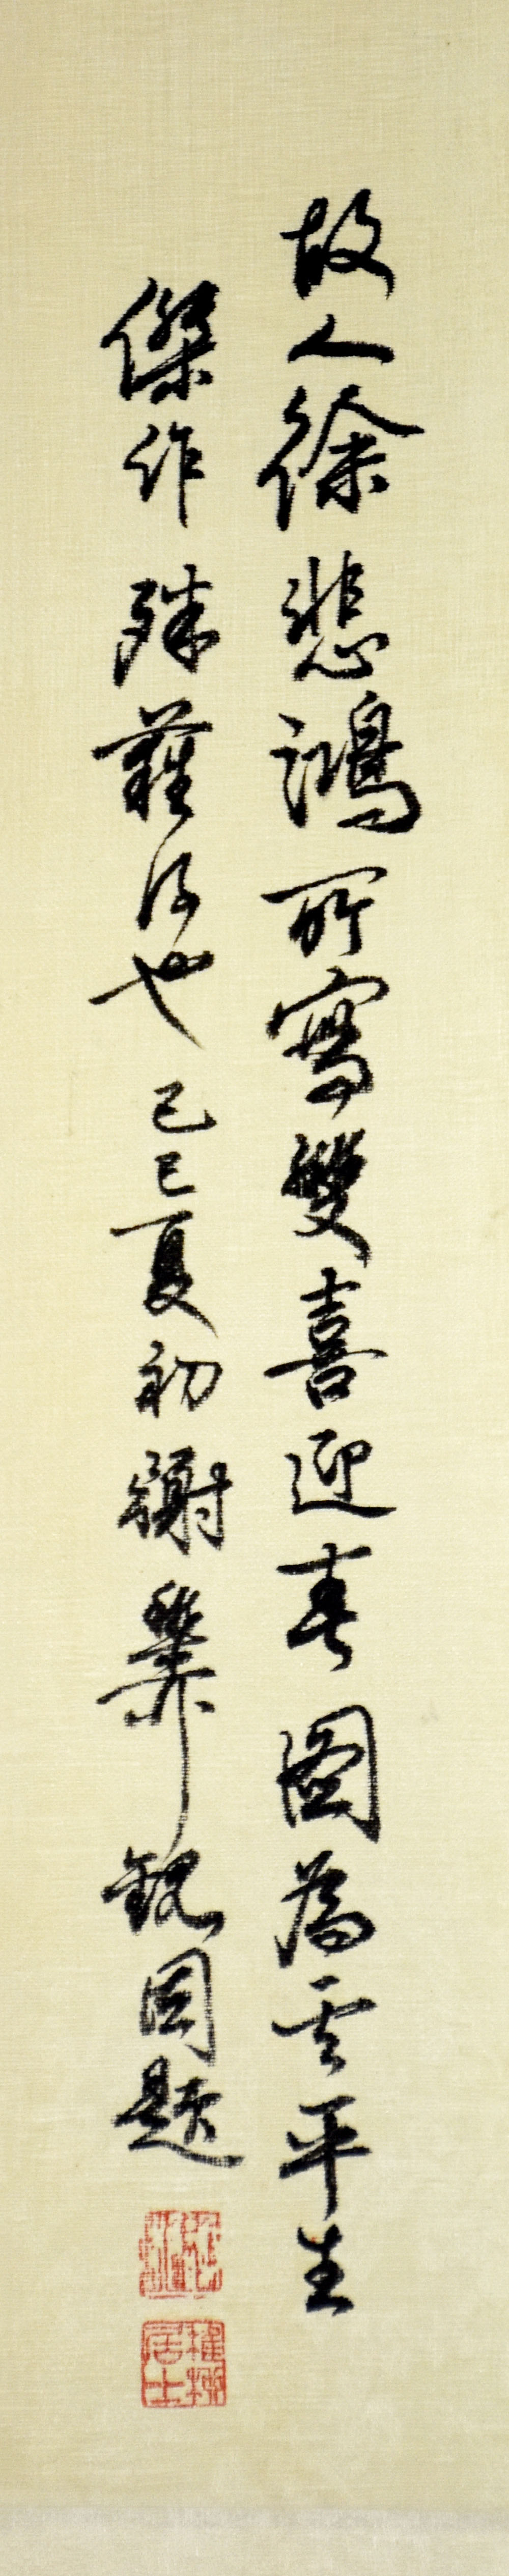 故人徐悲鴻所寫雙喜迎春圖為其平生
傑作殊難得也己巳夏初謝稚觀因題
稚柳居士